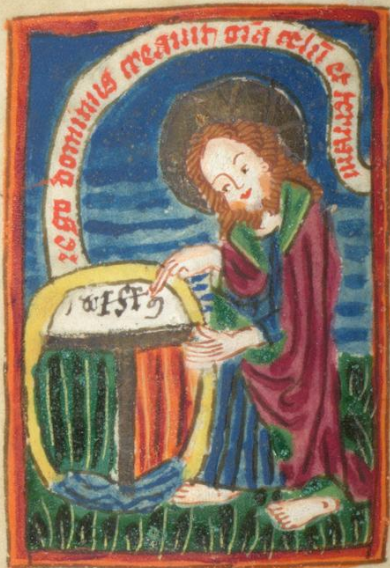 ego dominus creauit oīa celū et terram